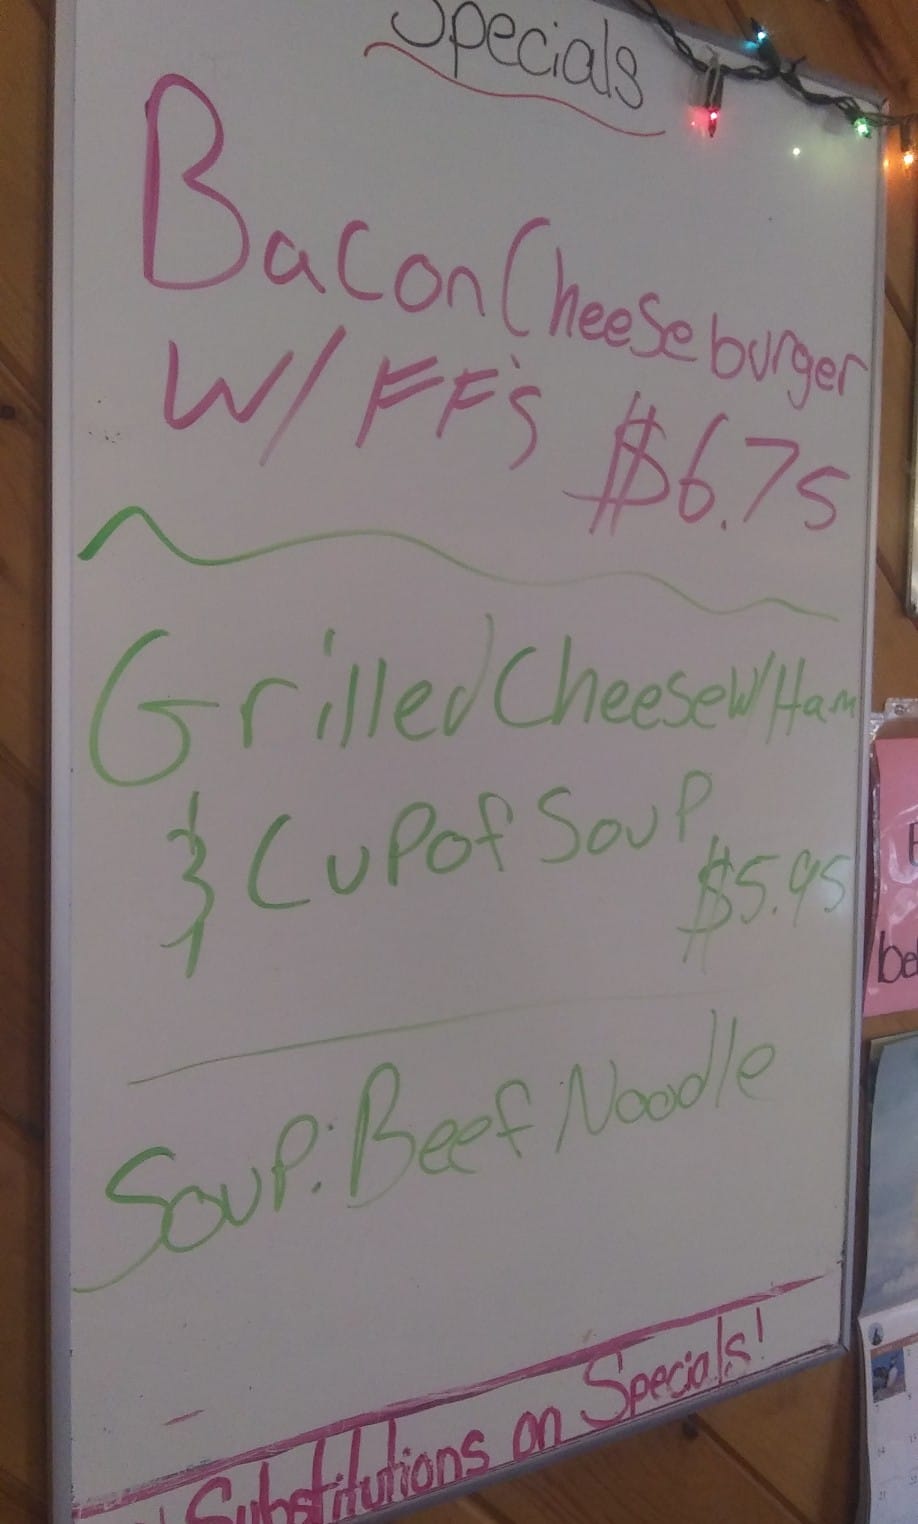 Specials
Bacon Cheeseburger
W/ FF's $6.75
Grilled Cheese W/ Ham
& Cup of Soup
$5.95
Soup: Beef Noodle
Substitutions on Specials!